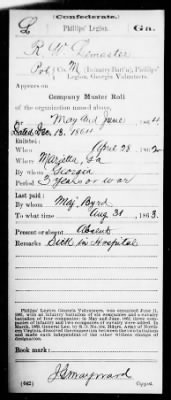 (Confederate.)
L Phillips' Legion. Ga.
R W Lemaster
Pvt, Co. M (Infantry Batt'n), Phillips'
Legion, Georgia Volunteers.
Appears on
Company Muster Roll
of the organization named above,
for May and June, 1864
dated Dec 13, 1864
Enlisted:
When April 28, 1862
Where Marietta, Ga
By whom Georgia
Period 3 years or war
Last paid:
By whom Maj. Byrd
To what time Aug 31, 1863.
Present or absent Absent
Remarks: Sick in Hospital
Phillips' Legion Georgia Volunteers, was organized June 11,
Book mark:
J S Maynard
(642) Copyist.